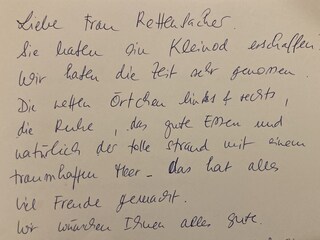 Liebe Frau Rettenbacher.
Sie haben ein Kleinod erschaffen!
Wir haben die Zeit sehr genossen.
Die netten Örtchen links & rechts,
die Ruhe, das gute Essen und
natürlich der tolle Strand mit einem
traumhaften Meer - das hat alles
viel Freude gemacht.
Wir wünschen Ihnen alles gute.